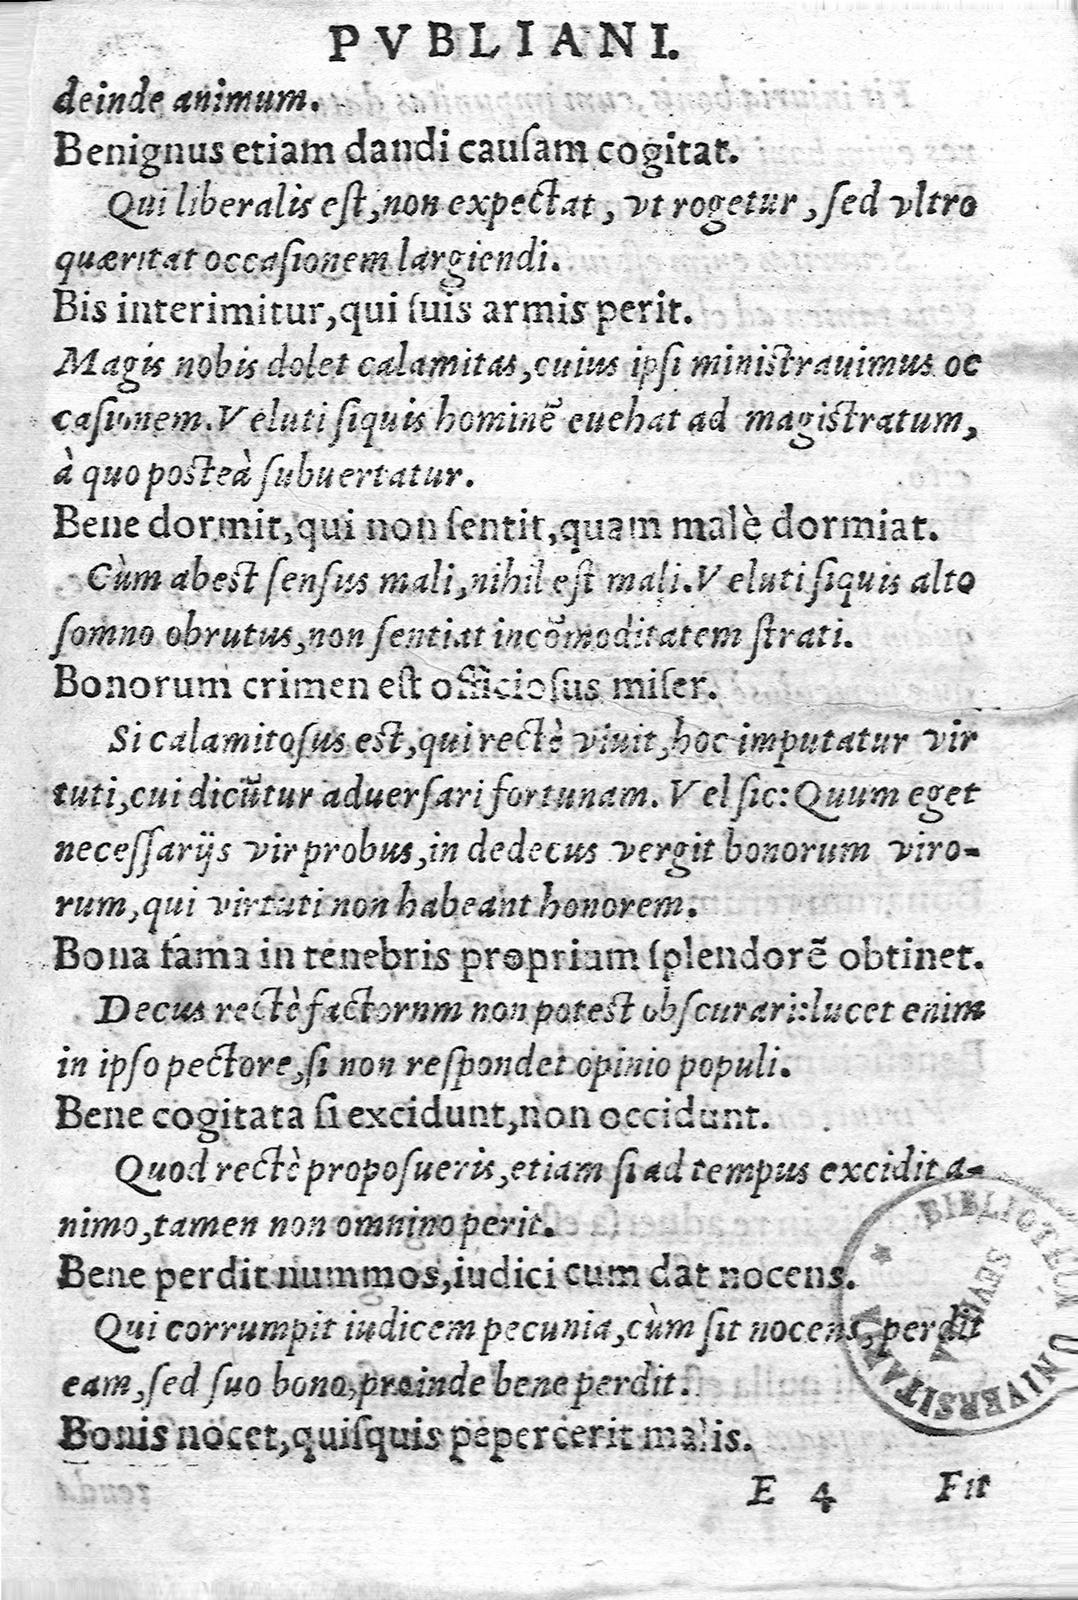 PVBLIANI.
deinde animum.
Benignus etiam dandi cauſam cogitat.
Qui liberalis eſt, non expectat, vt rogetur, ſed vltro
quæritat occaſionem largiendi.
Bis interimitur, qui ſuis armis perit.
Magis nobis dolet calamitas, cuius ipſi miniſtrauimus oc
caſionem. Veluti ſiquis hominẽ euehat ad magiſtratum,
à quo poſteà ſubuertatur.
Bene dormit, qui non ſentit, quam malè dormiat.
Cùm abeſt ſenſus mali, nihil eſt mali. Veluti ſiquis alto
ſomno obrutus, non ſentiat incõmoditatem ſtrati.
Bonorum crimen eſt officioſus miſer.
Si calamitoſus eſt, qui rectè viuit, hoc imputatur vir
tuti, cui dicũtur aduerſari fortunam. Vel ſic: Quum eget
neceſſarijs vir probus, in dedecus vergit bonorum viro-
rum, qui virtuti non habeant honorem.
Bona fama in tenebris proprium ſplendorẽ obtinet.
Decus rectè factorum non poteſt obſcurari: lucet enim
in ipſo pectore, ſi non reſpondet opinio populi.
Bene cogitata ſi excidunt, non occidunt.
Quod rectè propoſueris, etiam ſi ad tempus excidit a-
nimo, tamen non omnino perit.
Bene perdit nummos, iudici cum dat nocens.
Qui corrumpit iudicem pecunia, cùm ſit nocens, perdit
eam, ſed ſuo bono, proinde bene perdit.
Bonis nocet, quiſquis pepercerit malis.
E 4 Fit
BIBLIOTECA UNIVERSITARIA
SEVILLA